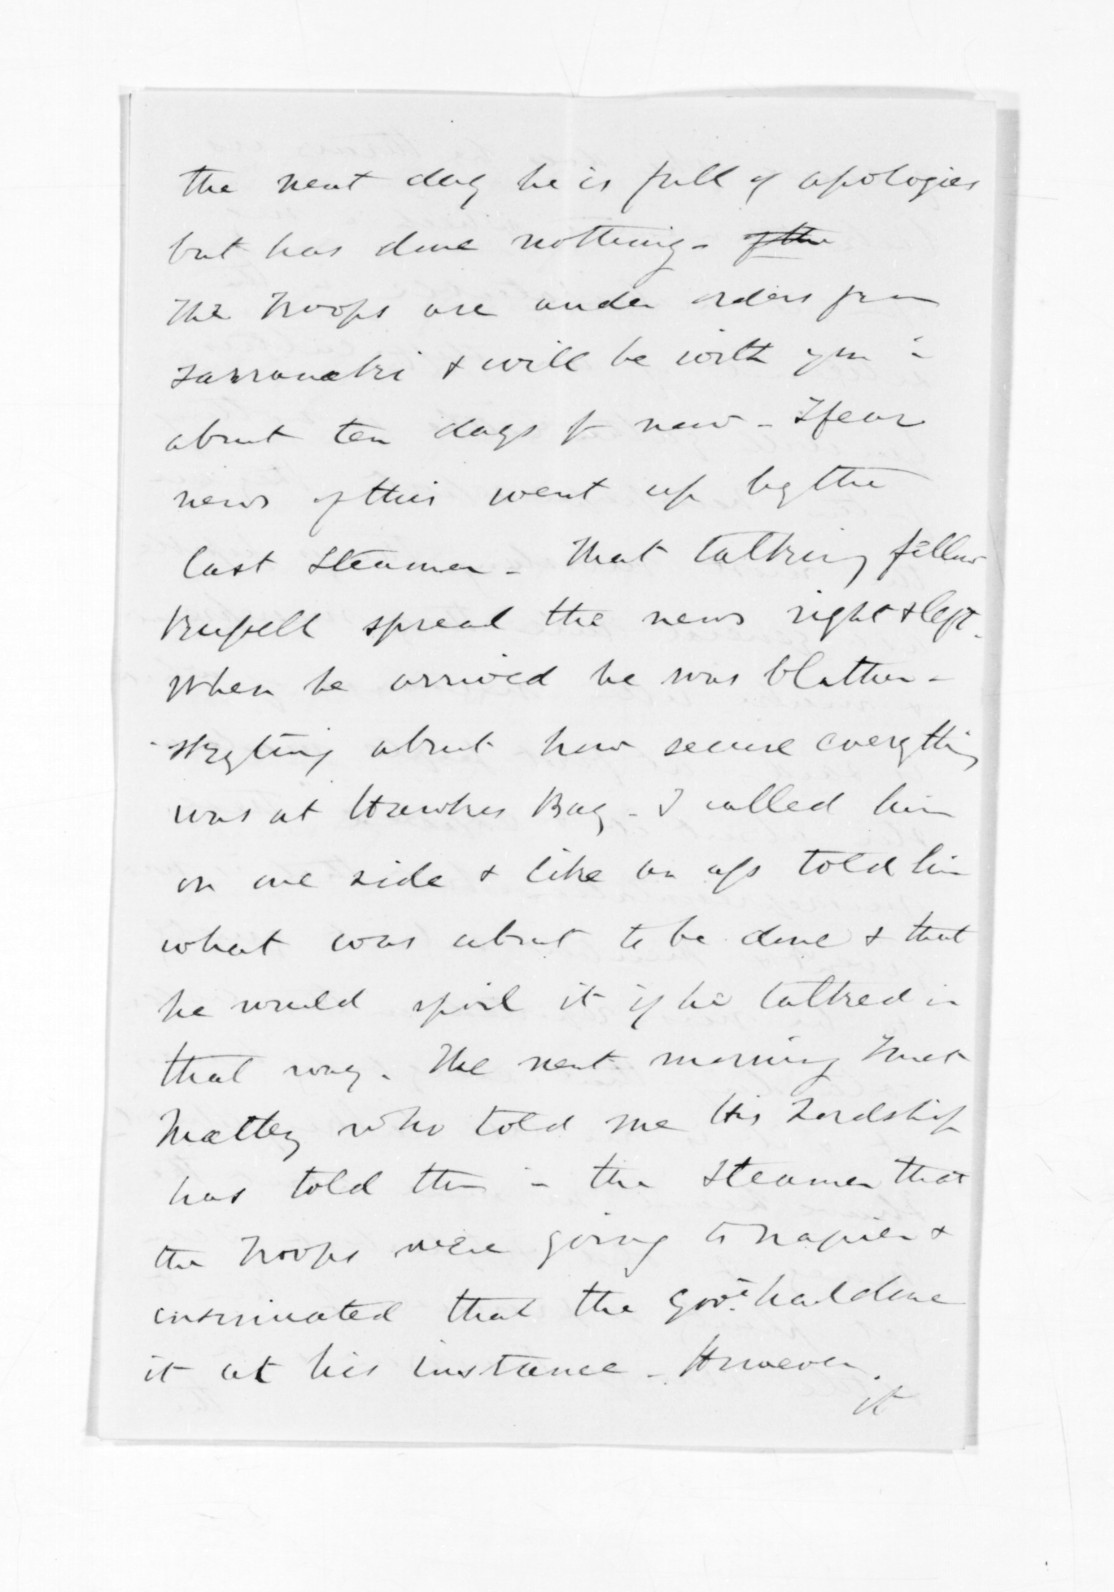 the next day he is full of apologies
but has done nothing - of the
The Troops are under orders from
Tarranaki & will be with you in
about ten days fr now - I fear
news of this went up by the
last Steamer - That talking fellow
Russell spread the news right & left.
When he arrived he was blather-
-skyting about how secure everything
was at Hawkes Bay - I called him
on one side & like an ass told him
what was about to be done & that
he would spoil it if he talked in
that way. The next morning I met
Matley who told me His Lordship
has told them in the Steamer that
the Troops were going to Napier &
insinuated that the Govt. had done
it at his instance - However
it